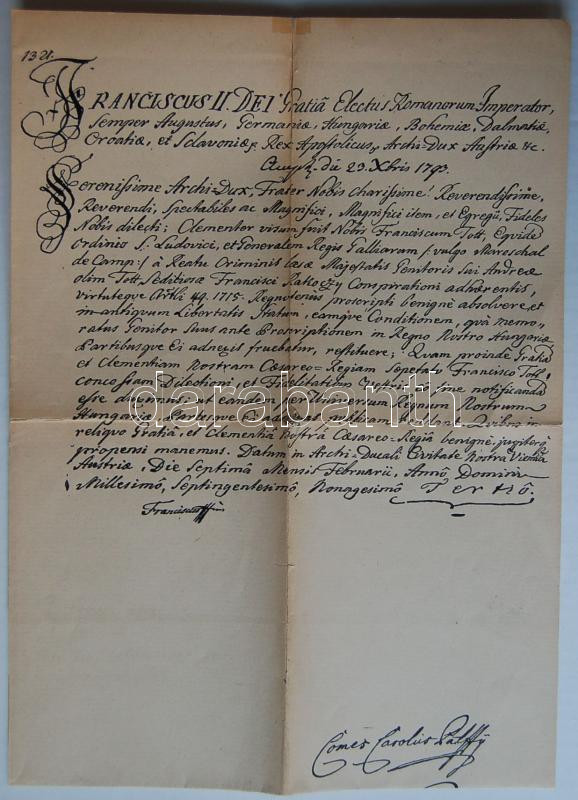 1321.
FRANCISCUS II. DEI Gratiâ Electus Romanorum Imperator,
Semper Augustus, Germaniæ, Hungariæ, Bohemiæ, Dalmatiæ,
Croatiæ, et Sclavoniæ, Rex Apostolicus, Archi-Dux Austriæ &c.
29. Xbris 1793.
Serenissime Archi-Dux, Frater Nobis charissime! Reverendissime,
Reverendi, Spectabiles ac Magnifici, Magnifici item, et Egregii, Fideles
Nobis dilecti; Clementer visum fuit Nobis Franciscum Tott, Equitē
Ordinis S. Ludovici, et Generalem Regis Galliarum /: vulgo Mareschal
de Camp :/ à Reatu Criminis læsæ Majestatis Genitoris sui Andreæ
olim Tott Seditiosæ Francisci Rakoczy Conspirationi adhærentis,
virtuteque Artli 49. 1715. Regnotenus proscripti benignè absolvere, et
in antiquum Libertatis Statum, eamque Conditionem, quâ memo-
ratus Genitor Suus ante Proscriptionem in Regno Nostro Hungariæ
Partibusque Ei adnexis fruebatur, restituere; Quam proinde Gratiā
et Clementiam Nostram Cæsareo-Regiam Sæpefato Francisco Tott
concessam Dilectioni, et Fidelitatibus Vestris eô fine notificandā
esse duximus, ut eandem per Universum Regnum Nostrum
Hungariæ, Partesque Ei adnexas, publicam reddant. Quibus in
reliquo Gratiâ, et Clementiâ Nostrâ Cæsareo-Regiâ benignè jugiterq
propensi manemus. Datum in Archi-Ducali Civitate Nostra Viennā
Austriæ, Die Septimâ Mensis Februarii, Annô Domini
Millesimô, Septingentesimô, Nonagesimô Tertiô.
Franciscus
Comes Carolus Palffÿ
darabanth